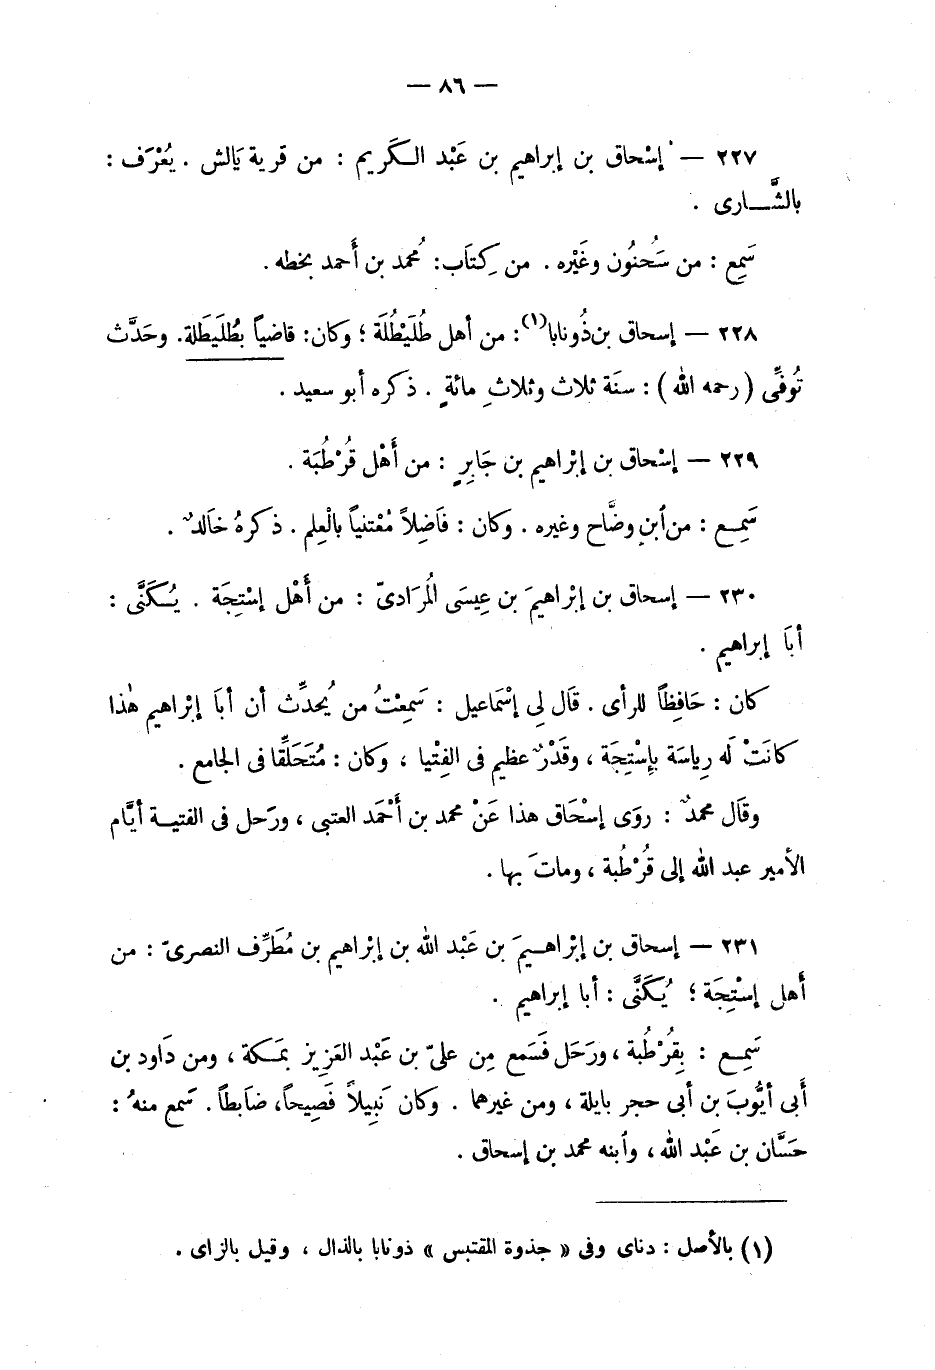 — ٨٦ —
٢٢٧ — إسْحاق بن إبراهيم بن عَبْد الـكَريم : من قرية يَالش . يُعْرَف :
بالشَّـــارى .
سَمِع : من سَحُنُون وغَيْره . من كِتَاب: مُحمد بن أَحمد بخطه .
٢٢٨ — إسحاق بن ذُونابا(١): من أهل طُلَيْطُلَة ؛ وكان: قاضياً بطُلَيطَلة. وحَدَّث
تُوفِّى ( رحمه الله ) : سنَة ثلاث وثلاثِ مائةٍ . ذكره أبو سعيد .
٢٢٩ — إسْحاق بن إبْراهيم بن جَابِرٍ : من أَهْل قُرْطُبَة .
سَمِـع : من ٱبنِ وضَّاح وغيره . وكان : فَاضِلاً مُعْتنياً بالْعِلم . ذكرهُ خَالدٌ .
٢٣٠ — إسحاق بن إبْراهيمَ بن عِيسَى الْمُرَادىّ : من أَهْل إسْتِجَة . يُـكَنَّى :
أبَا إبراهيم .
كان : حَافِظاً للرأى . قَال لِى إسْمَاعيل : سَمِعْتُ من يُحدِّث أن أبَا إبْراهيم هٰذا
كانَتْ لَه رِياسَة بإسْتِجَة ، وقَدْرٌ عظيم فى الفِتْيا ، وكان : مُتَحَلِّقا فى الجامع .
وقَال محمدٌ : روَى إسْحَاق هذا عَنْ محمد بن أَحْمَد العتبى ، ورَحل فى الفتيـة أيَّام
الأمير عبد الله إلى قُرْطُبة ، وماتَ بها .
٢٣١ — إسحاق بن إبْراهـيمَ بن عَبْد الله بن إبْراهيم بن مُطَرِّف النصرىّ : من
أهل إسْتِجَة ؛ يُكَنَّى : أبا إبراهيم .
سَمِـع : بِقُرْطُبة ، ورَحَل فَسَمع مِن علىّ بن عَبْد العَزِيز بمَـكة ، ومن دَاود بن
أَبى أيُّوبَ بن أبى حجر بايلة ، ومن غيرهما . وكان نَبِيلاً فَصِيحاً، ضَابطاً . سَمع منهُ :
حَسَّان بن عَبْد الله ، وٱبنه محمد بن إسحاق .
(١) بالأصل : دناى وفى « جذوة المقتبس » ذونابا بالذال ، وقيل بالزاى .